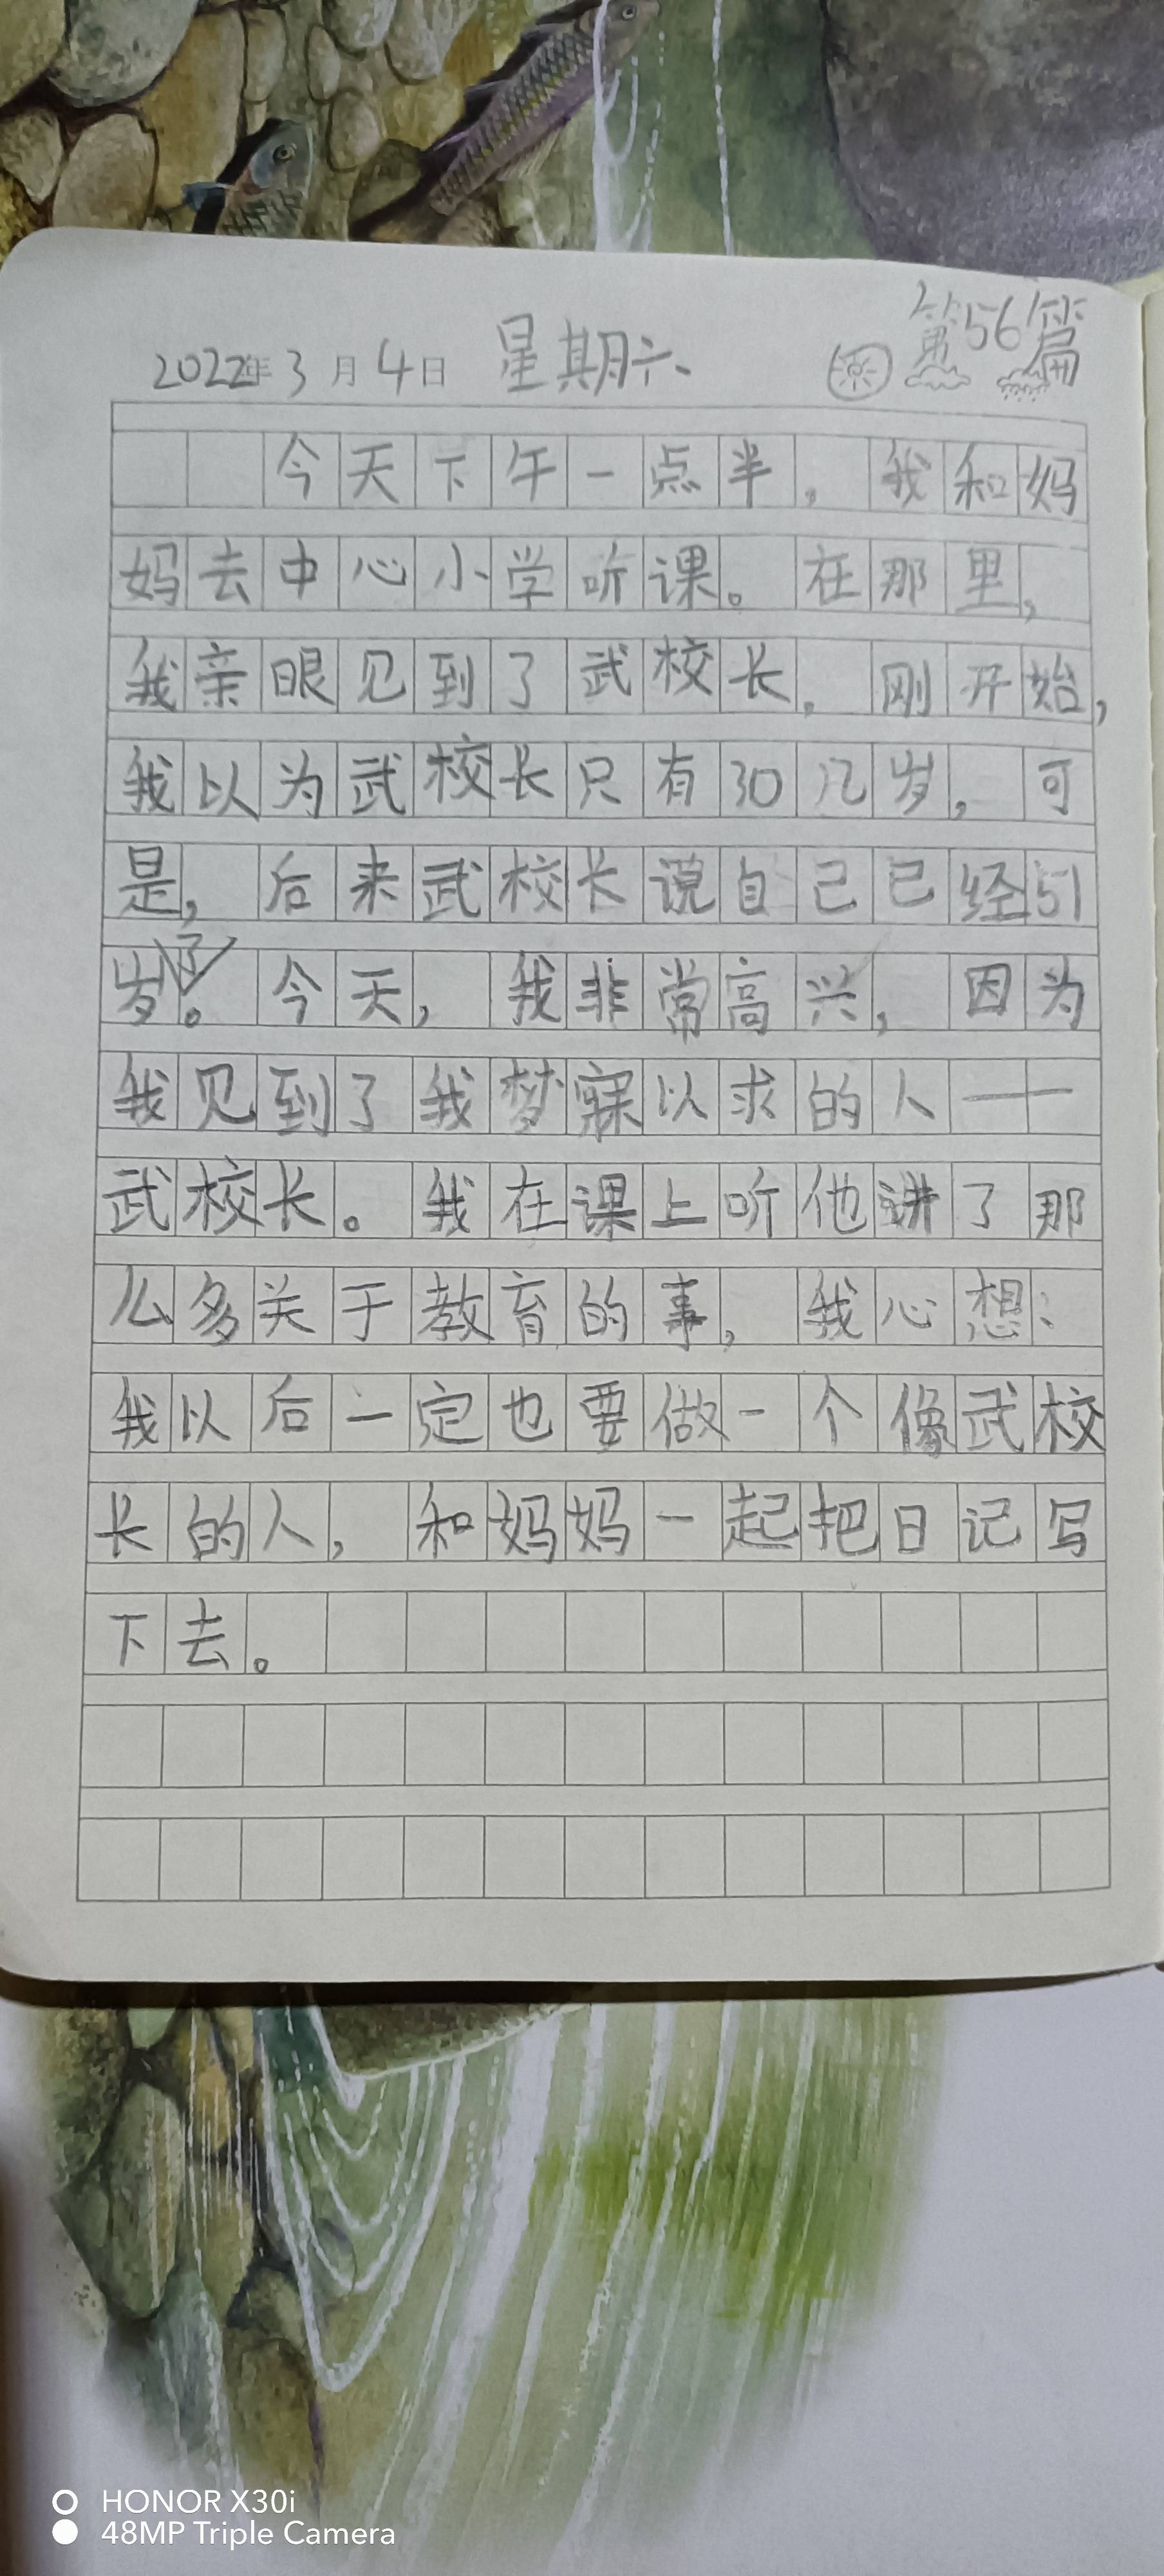 第56篇
2022年3月4日 星期六
今天下午一点半，我和妈
妈去中心小学听课。在那里，
我亲眼见到了武校长，刚开始，
我以为武校长只有30几岁，可
是，后来武校长说自己已经51
岁了。今天，我非常高兴，因为
我见到了我梦寐以求的人——
武校长。我在课上听他讲了那
么多关于教育的事，我心想：
我以后一定也要做一个像武校
长的人，和妈妈一起把日记写
下去。
HONOR X30i
48MP Triple Camera